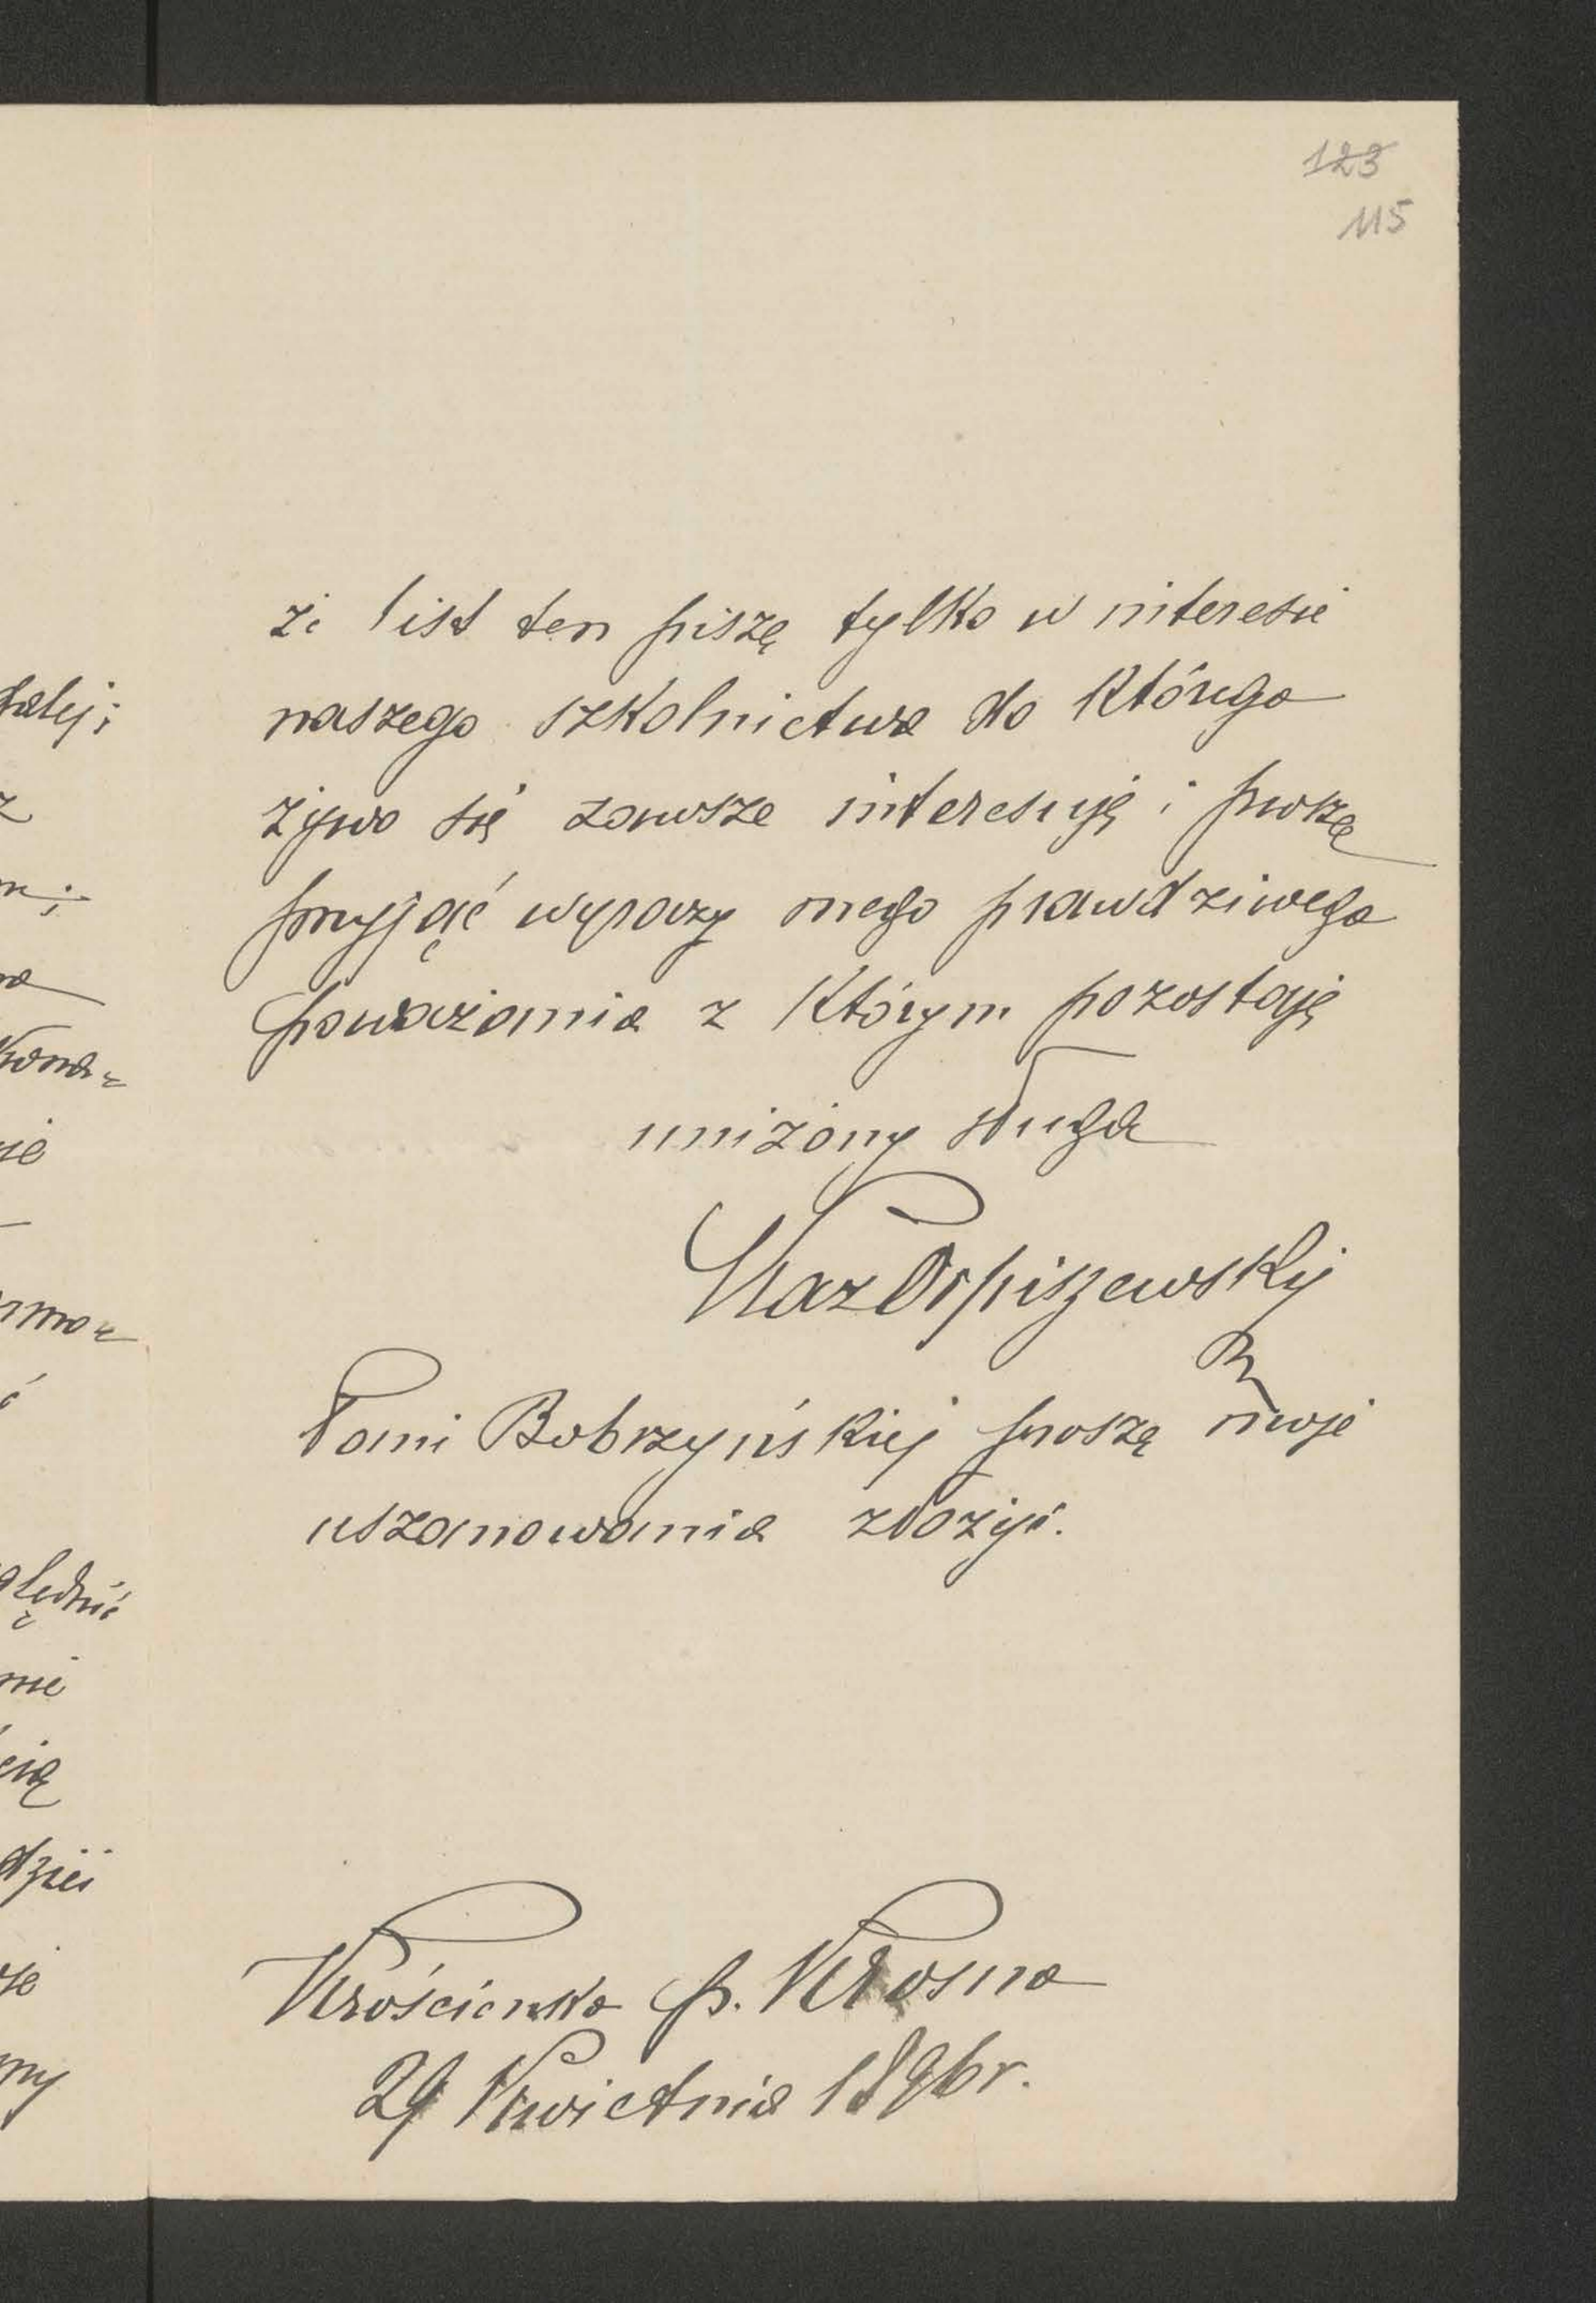 123
115
że list ten piszę tylko w interesie
naszego szkolnictwa do którego
żywo się zawsze interesuję i proszę
przyjąć wyrazy mego prawdziwego
poważania z którym pozostaję
uniżony sługa
Kaz Orpiszewskij
Pani Bobrzyńskiej proszę moje
uszanowania złożyć.
Krościenko p. Krosno
29 Kwietnia 1896 r.